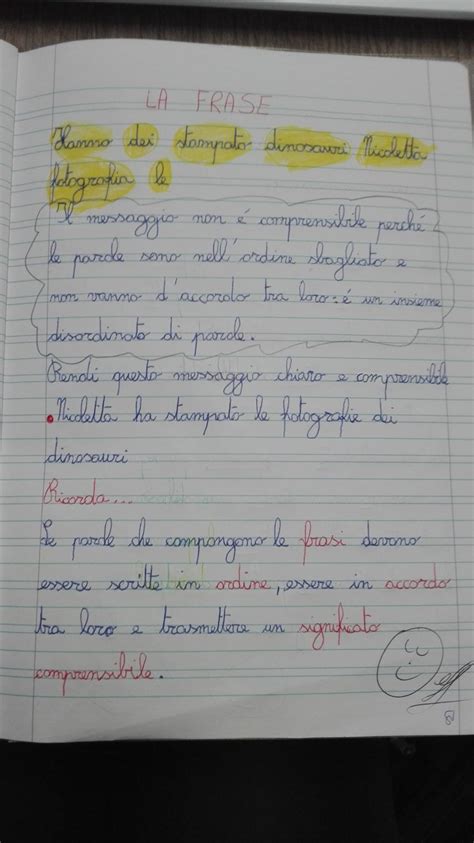 LA FRASE
Hanno dei stampato dinosauri Nicoletta
fotografia le
Il messaggio non é comprensibile perché
le parole sono nell'ordine sbagliato e
non vanno d'accordo tra loro: é un insieme
disordinato di parole.
Rendi questo messaggio chiaro e comprensibile
.Nicoletta ha stampato le fotografie dei
dinosauri
Ricorda...
Le parole che compongono le frasi devono
essere scritte in ordine, essere in accordo
tra loro e trasmettere un significato
comprensibile.